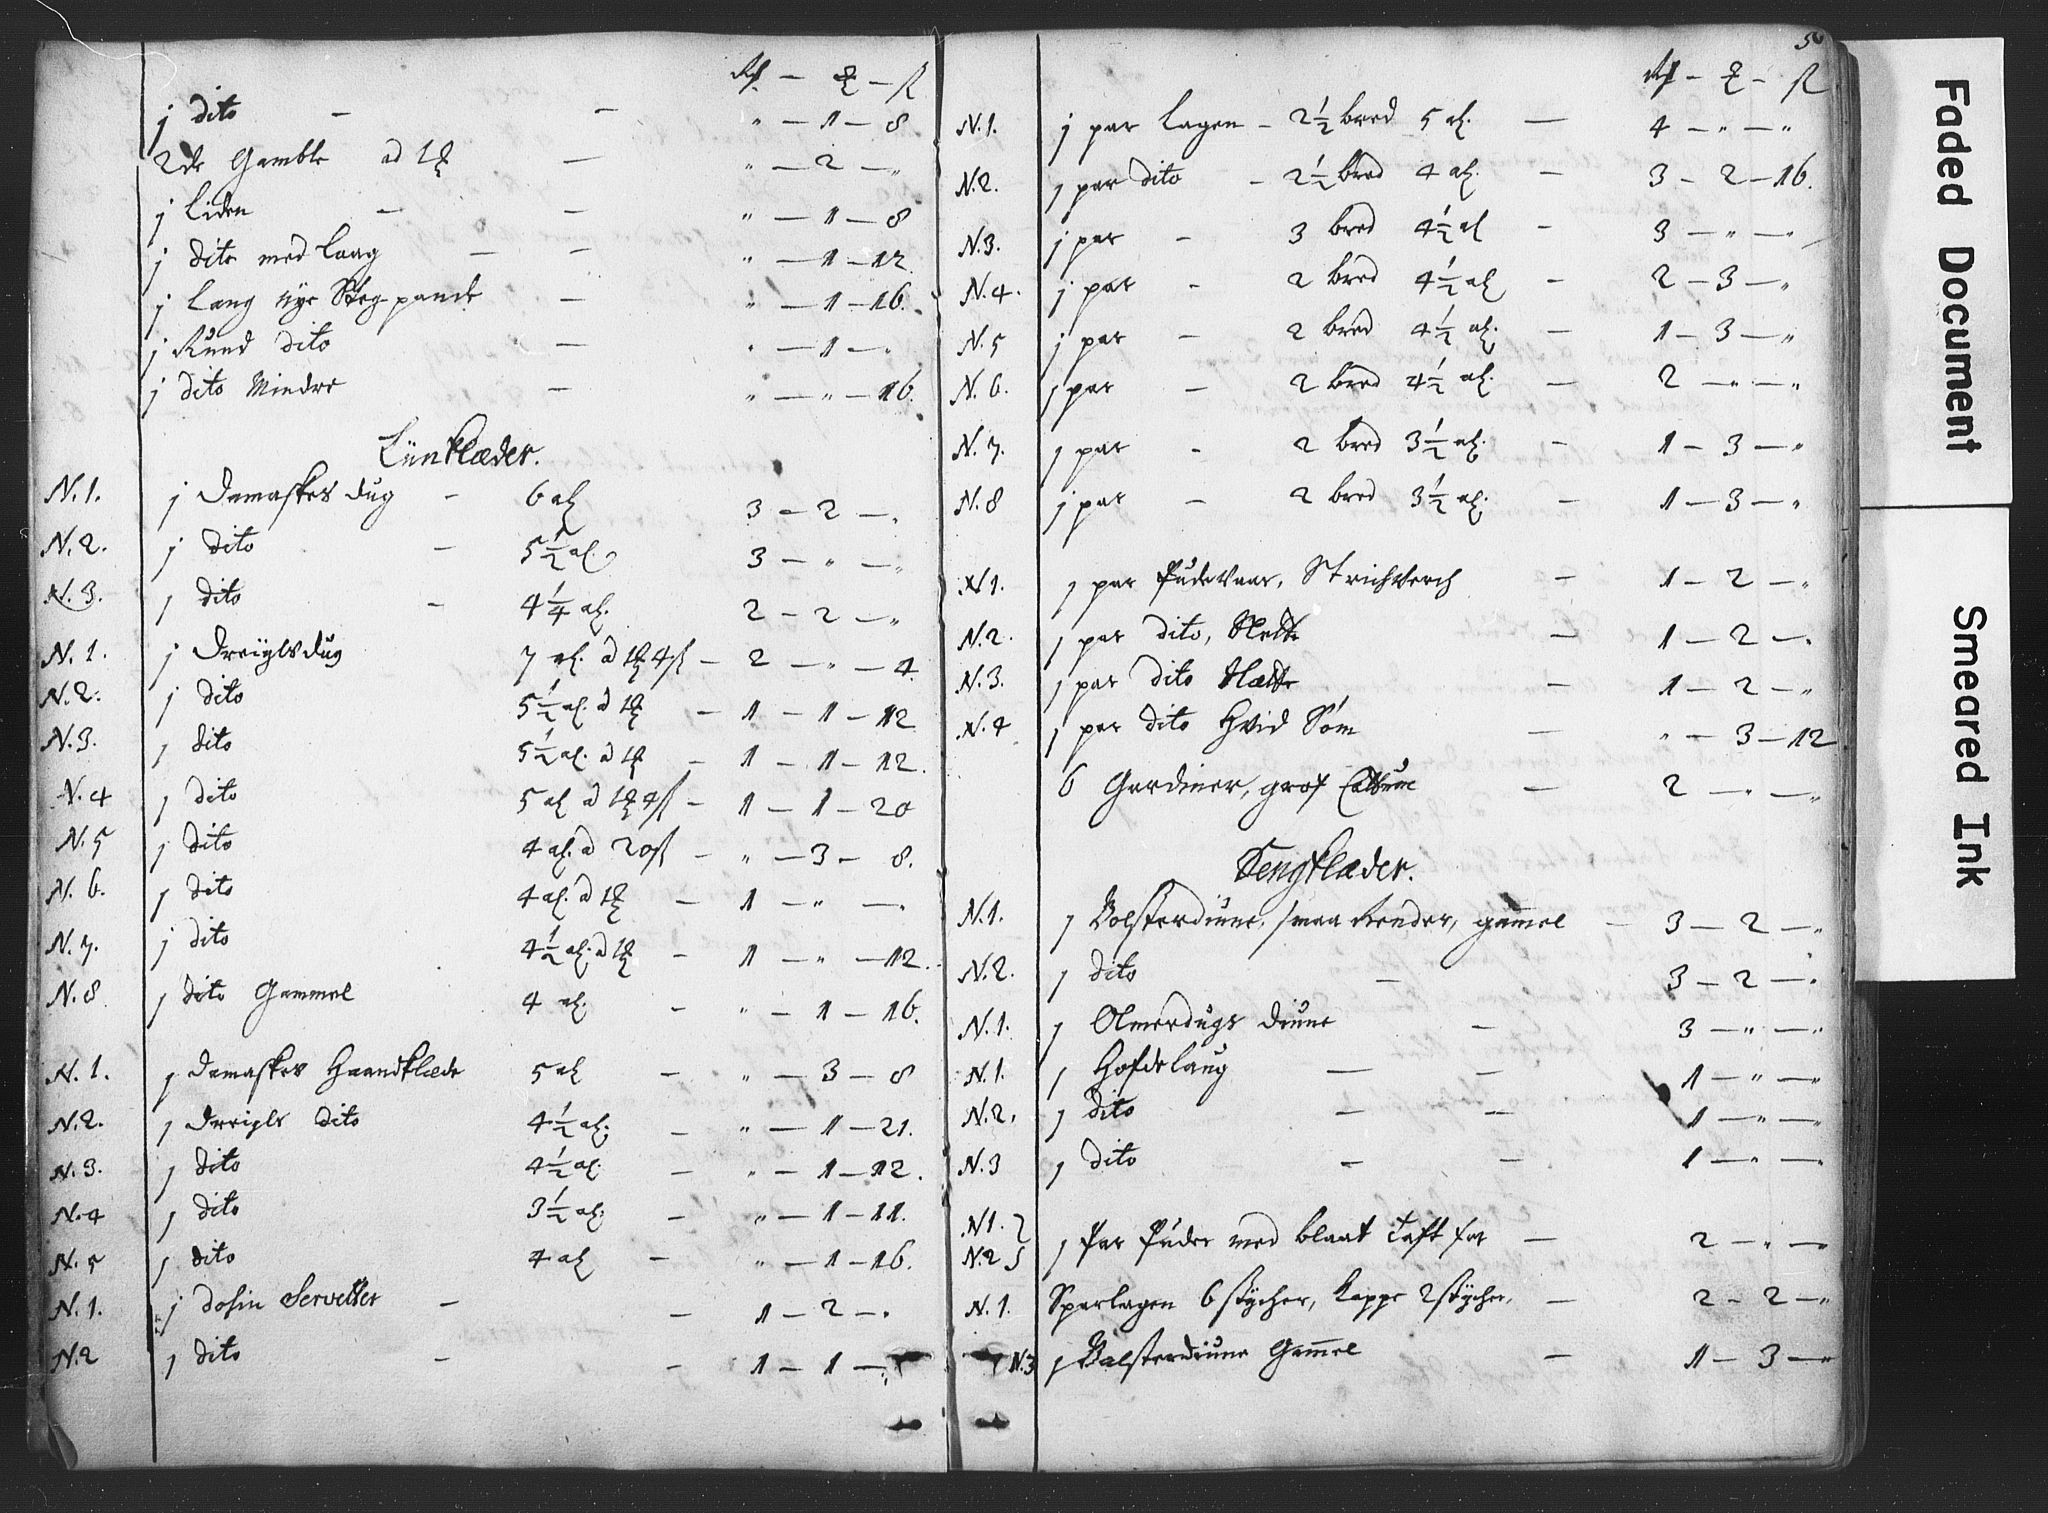 Rd — ℥ — ß
j dito — — " — 1 — 8
2de Gamble ad 1 ℥ — " — 2 — "
j Liden — — " — 1 — 8
j dito med Laag — — " — 1 — 12.
j Lang nye Steg-pande — " — 1 — 16.
j Rund dito — " — 1 — "
j dito Mindre — " — " — 16.
Liinklæder.
N. 1. j Damaskes dug — 6 al 3 — 2 — "
N. 2. j dito — 5½ al. 3 — " — "
N. 3. j dito — 4¼ al. 2 — 2 — "
N. 1. j Dreyels dug 7 al. a 1 ℥ 4 ß — 2 — " — 4
N. 2. j dito 5½ al. a 1 ℥ — 1 — 1 — 12
N. 3. j dito 5½ al. a 1 ℥ — 1 — 1 — 12.
N. 4 j dito 5 al a 1 ℥ 4 ß — 1 — 1 — 20
N. 5 j dito 4 al. a 20 ß — " — 3 — 8.
N. 6. j dito 4 al. a 1 ℥ — 1 — " — "
N. 7. j dito 4½ al. a 1 ℥ — 1 — " — 12.
N. 8 j dito Gammel 4 al. — " — 1 — 16.
N. 1. j Damaskes Haandklæde 5 al — " — 3 — 8
N. 2. j Dreyels dito 4½ al. — " — 1 — 21.
N. 3. j dito 4½ al. — " — 1 — 12.
N. 4 j dito 3½ al. — " — 1 — 11.
N. 5 j dito 4 al — " — 1 — 16.
N. 1. j dosin Servetter — — 1 — 2 — "
N. 2 j dito — — 1 — 1 — "
5
Rd — ℥ — ß
N. 1. j par Lagen — 2½ bred 5 al. — 4 — " — "
N. 2. j par dito — 2½ bred 4 al. — 3 — 2 — 16.
N. 3. j par — 3 bred 4½ al — 3 — " — "
N. 4. j par — 2 bred 4½ al — 2 — 3 — "
N. 5 j par — 2 bred 4½ al. — 1 — 3 — "
N. 6. j par — 2 bred 4½ al. — 2 — " — "
N. 7. j par — 2 bred 3½ al. — 1 — 3 — "
N. 8 j par — 2 bred 3½ al. — 1 — 3 — "
N 1. j par Pudevaar, Strichverch — 1 — 2 — "
N. 2. j par dito, Slette — 1 — 2 — "
N. 3. j par dito Slette — 1 — 2 — "
N. 4 j par dito Hvid Søm — " — 3 — 12
6 Gardiner, grof Cattune — 2 — " — "
Sengklæder.
N. 1. j Bolsterdiune, smaa Render, gamel — 3 — 2 — "
N. 2. j dito — 3 — 2 — "
N. 1. j Olmerdugs Diune — 3 — " — "
N. 1. j Hofdelaug — — 1 — " — "
N. 2. j dito — — 1 — " — "
N. 3 j dito — — 1 — " — "
N 1.
N. 2 j Par Puder med blaat Taft for — 2 — " — "
N. 1. Sparlagen 6 stycher, Kappe 2 stycher, — 2 — 2 — "
N. 3 j Bolsterdiune Gamel — 1 — 3 — "
Faded Document
Smeared Ink